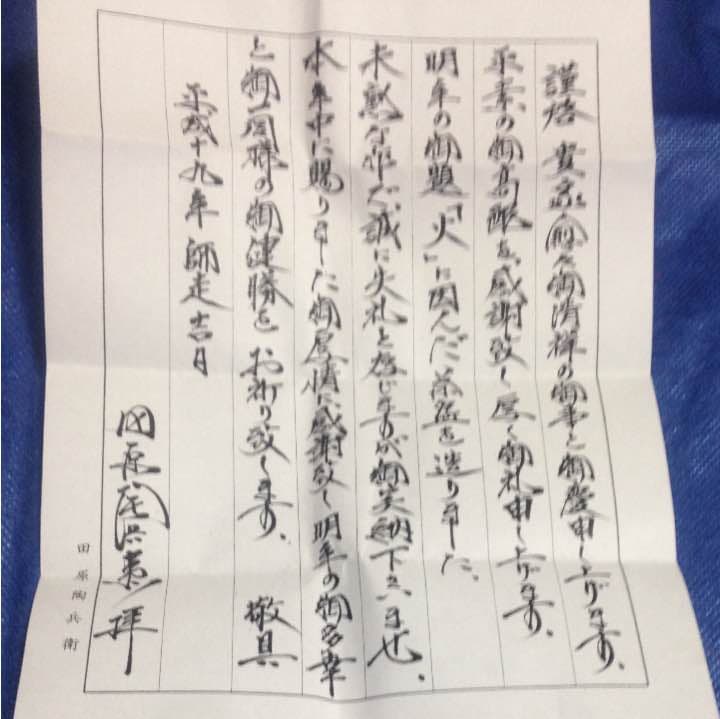 謹啓 貴家愈々御清祥の御事と御慶申し上げます、
平素の御高配を感謝致し厚く御礼申し上げます、
明年の御題「火」に因んだ茶盌を造りました、
未熟な作で、誠に失礼と存じますが御笑納下さいませ、
本年中に賜りました御厚情に感謝致し明年の御多幸
と御一同様の御健勝をお祈り致します、 敬具
平成十九年師走吉日
田原陶兵衛 拝
田原陶兵衛